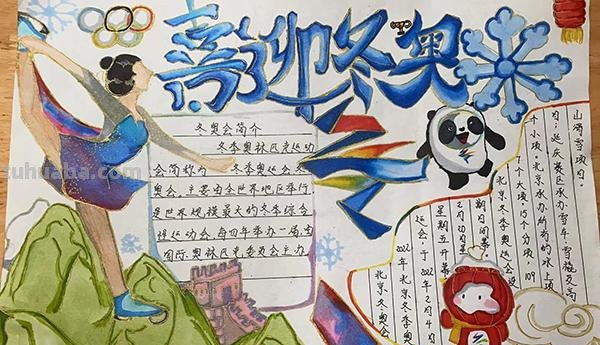 喜迎冬奥
冬奥会简介
冬季奥林匹克运动
会简称为 冬季奥运会、冬
奥会。主要由全世界地区举行
是世界规模最大的冬季综合
性运动会，每四年举办一届。由
国际奥林匹克委员会主办
北京冬奥会
2022年北京冬季奥
运会，于2022年2月4日
星期五开幕
2月20日
期日闭幕
北京冬季奥运会设
7个大项，15个分项，109
个小项。北京承办所有的冰上项
内；延庆赛区承办雪车、雪橇及高
山滑雪项目。
tuhuaba.com